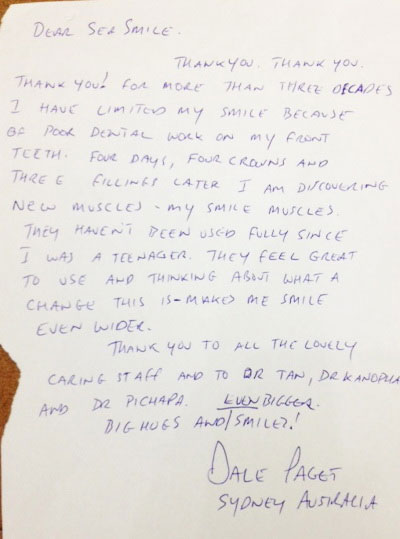 DEAR SEA SMILE.
THANKYOU. THANK YOU.
THANK YOU! FOR MORE THAN THREE DECADES
I HAVE LIMITED MY SMILE BECAUSE
OF POOR DENTAL WORK ON MY FRONT
TEETH. FOUR DAYS, FOUR CROWNS AND
THREE FILLINGS LATER I AM DISCOVERING
NEW MUSCLES - MY SMILE MUSCLES.
THEY HAVEN'T BEEN USED FULLY SINCE
I WAS A TEENAGER. THEY FEEL GREAT
TO USE AND THINKING ABOUT WHAT A
CHANGE THIS IS - MAKES ME SMILE
EVEN WIDER.
THANK YOU TO ALL THE LOVELY
CARING STAFF AND TO DR TAN, DR KANOPHA
AND DR PICHAPA. EVEN BIGGER.
BIG HUGS AND/SMILES!
DALE PAGET
SYDNEY AUSTRALIA